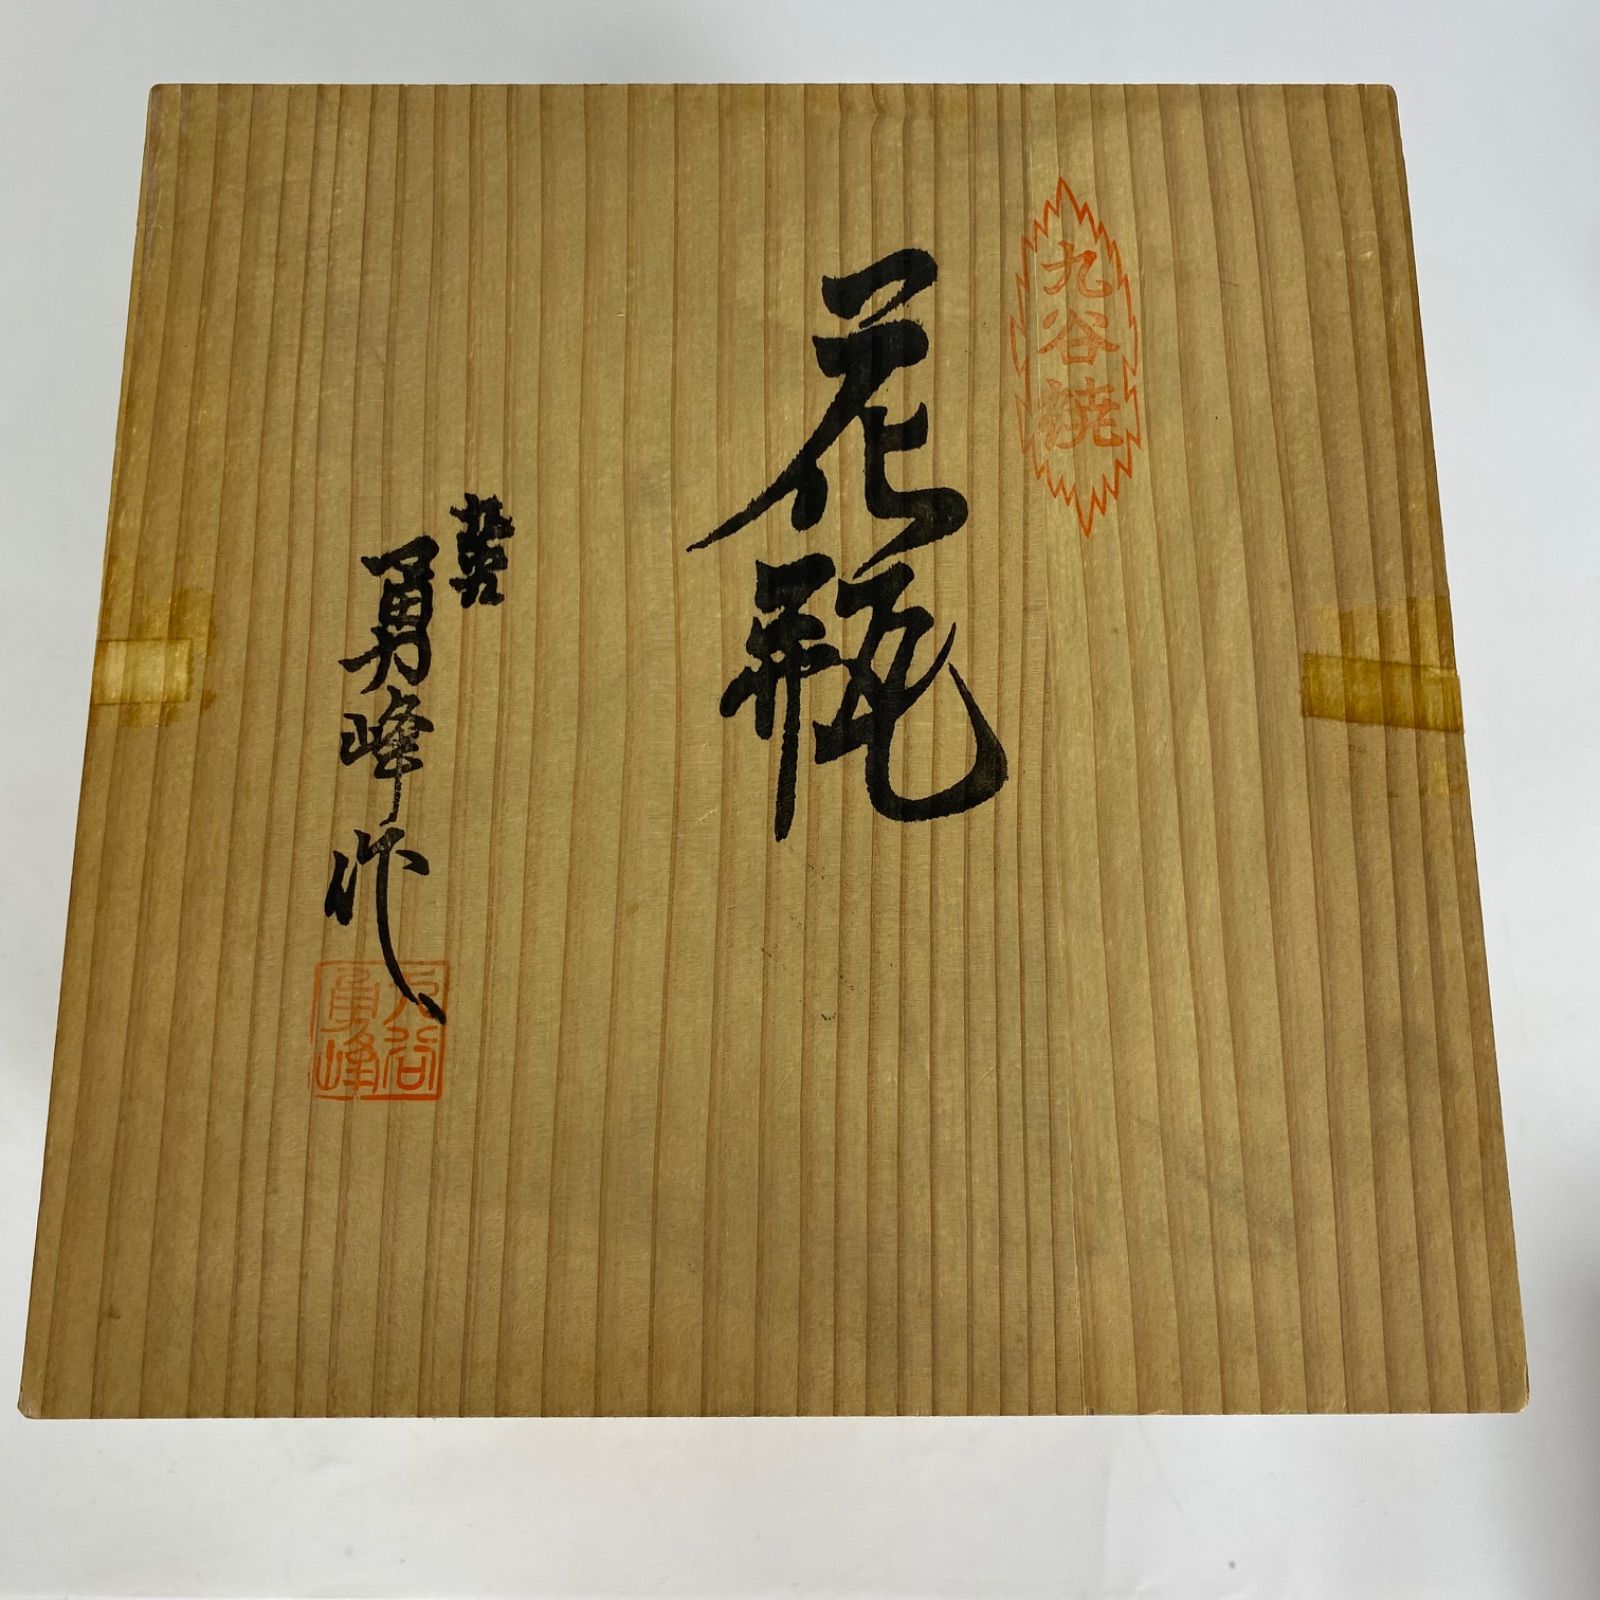 九谷焼
花瓶
勇峰作
九谷
勇峰